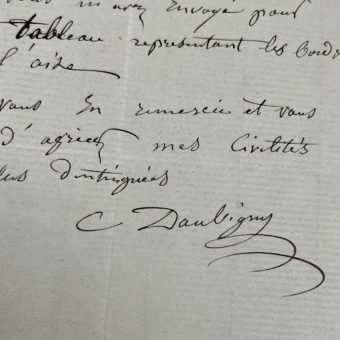 m'avez envoyé pour
tableau representant les bords
l'oise
vous en remercie et vous
d'agréer mes Civilités
plus distinguées
C Daubigny